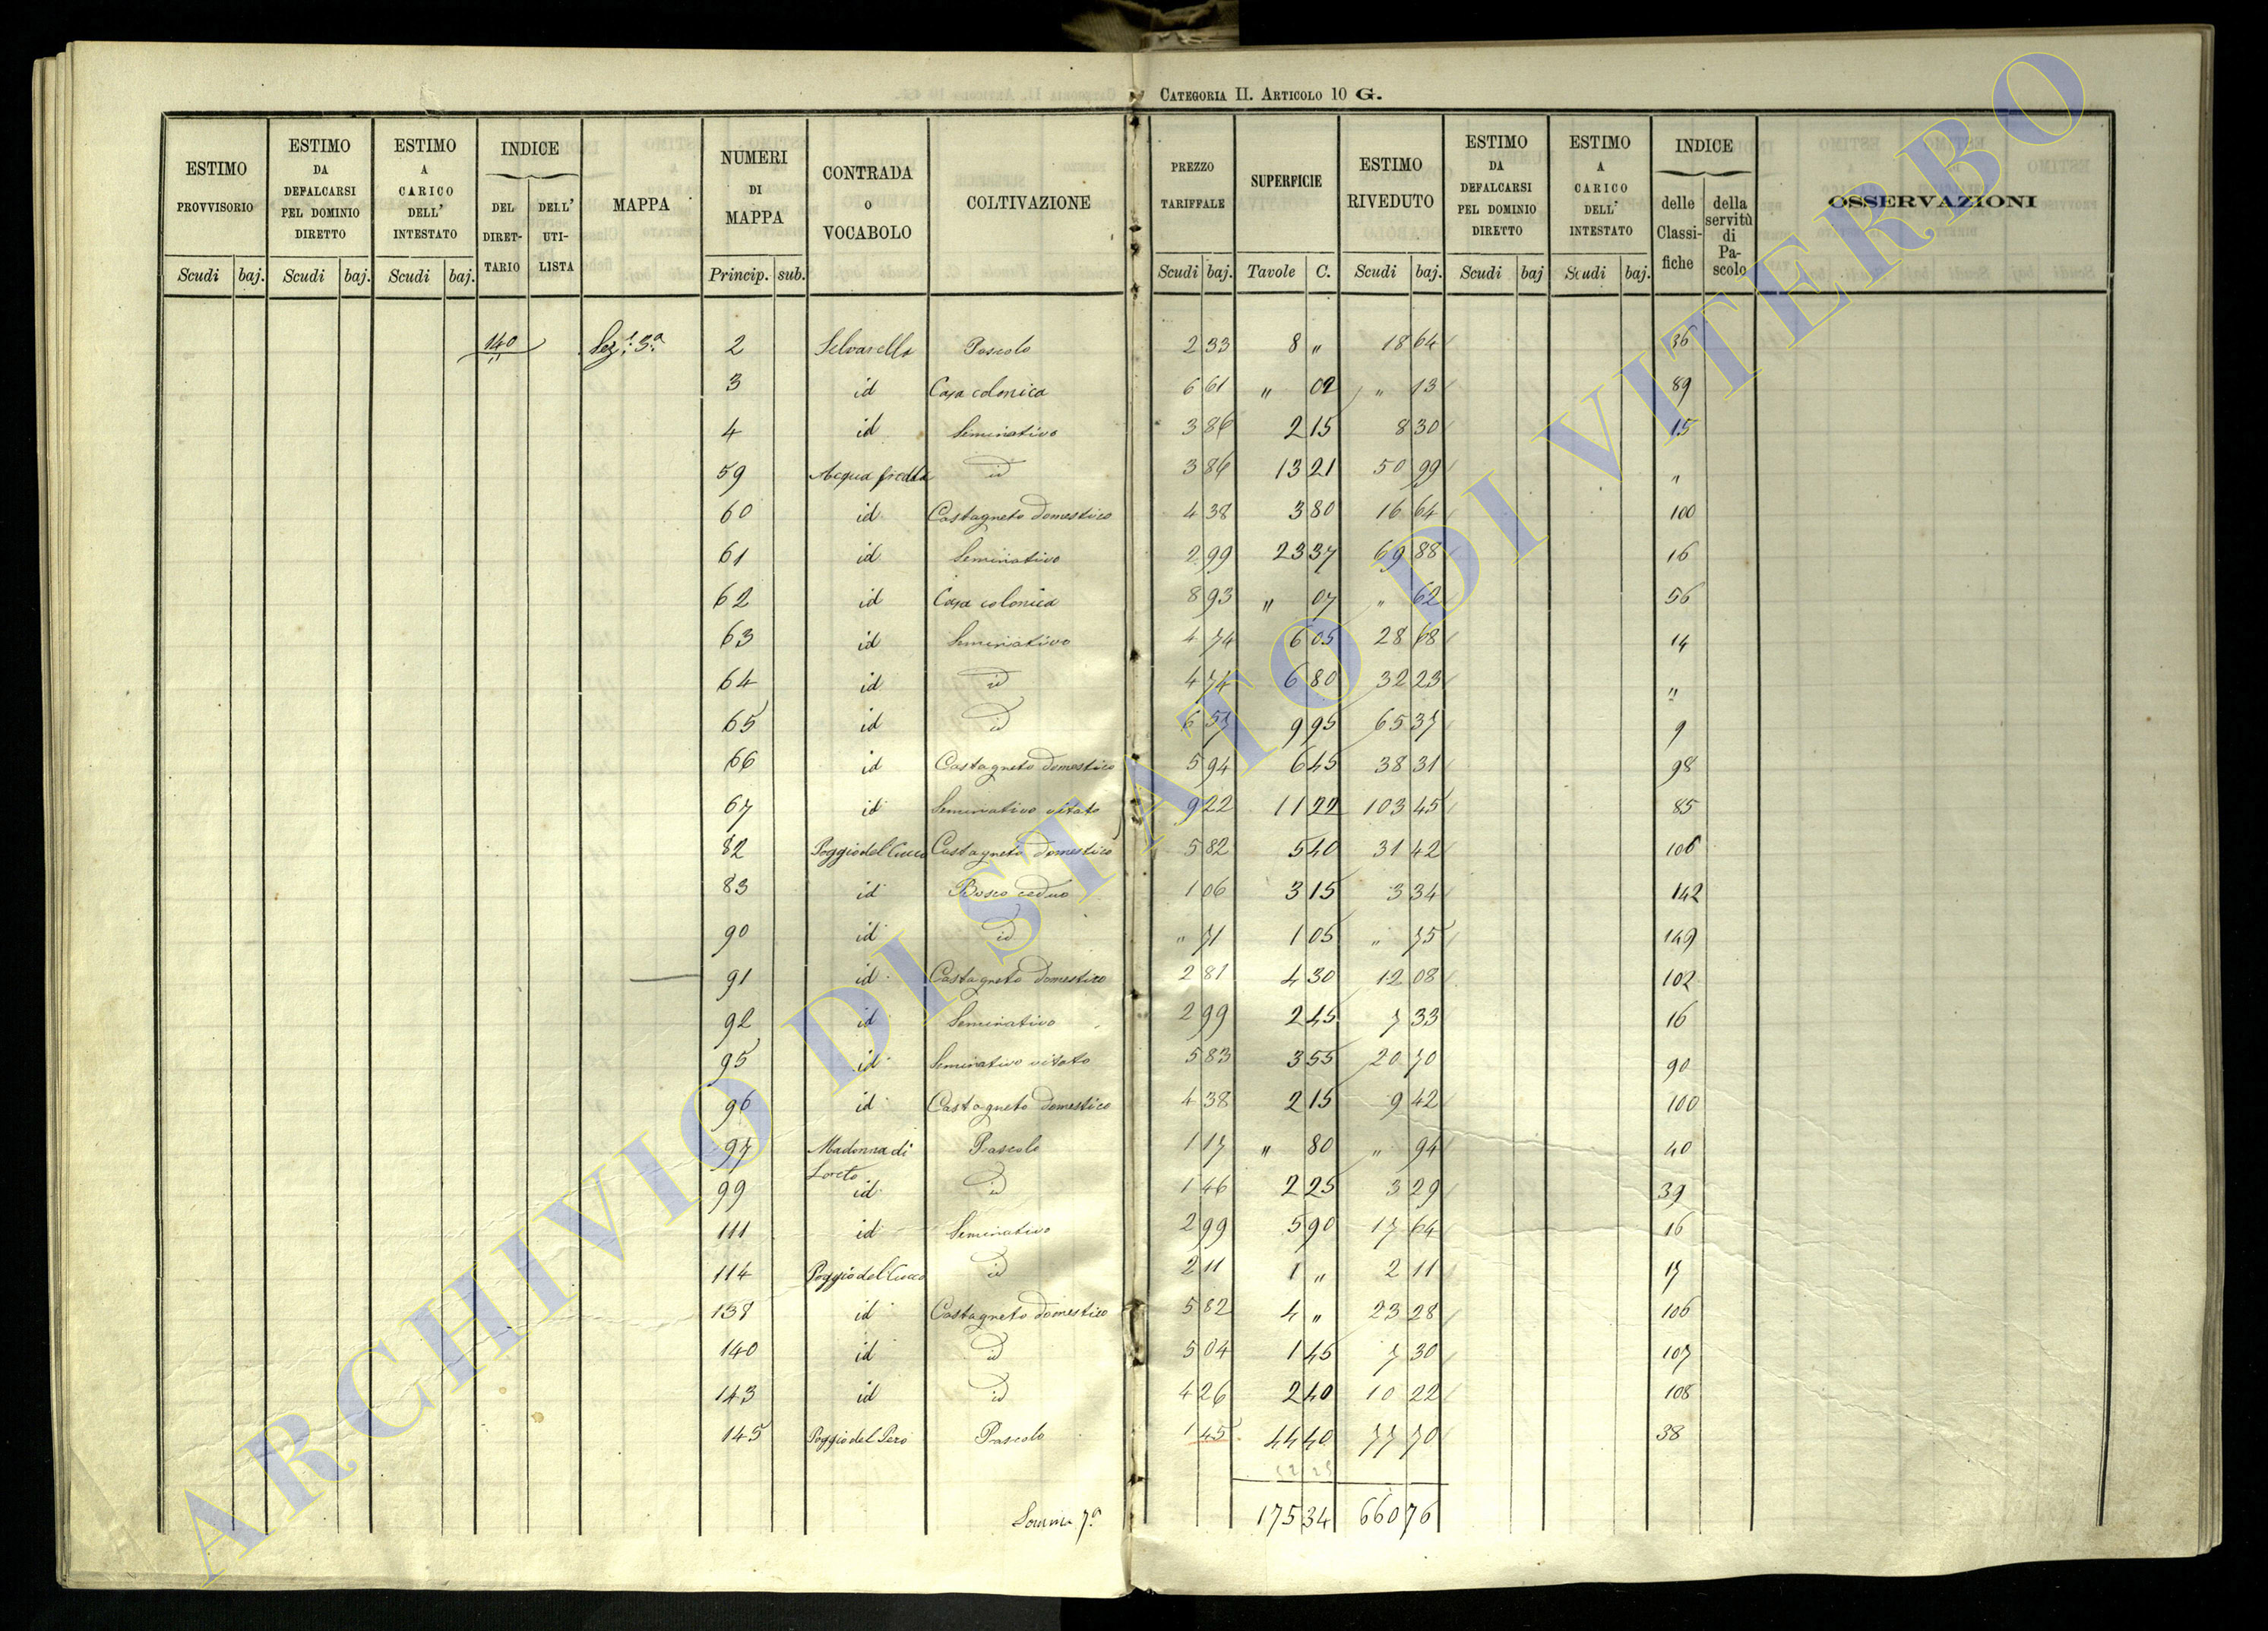 CATEGORIA II. ARTICOLO 10 G.
ESTIMO PROVVISORIO Scudi baj.
ESTIMO DA DEFALCARSI PEL DOMINIO DIRETTO Scudi baj.
ESTIMO A CARICO DELL' INTESTATO Scudi baj.
INDICE DEL DIRETTARIO DELL' UTILISTA
MAPPA
NUMERI DI MAPPA Princip. sub.
CONTRADA O VOCABOLO
COLTIVAZIONE
PREZZO TARIFFALE Scudi baj.
SUPERFICIE Tavole C.
ESTIMO RIVEDUTO Scudi baj.
ESTIMO DA DEFALCARSI PEL DOMINIO DIRETTO Scudi baj
ESTIMO A CARICO DELL' INTESTATO Scudi baj.
INDICE delle Classifiche della servitù di Pascolo
OSSERVAZIONI
140 Sez. 3ª 2 Selvarella Pascolo 2 33 8 " 18 64 36
3 id Casa colonica 6 61 " 02 " 13 89
4 id Seminativo 3 86 2 15 8 30 15
59 Acqua fredda id 3 86 13 21 50 99 "
60 id Castagneto domestico 4 38 3 80 16 64 100
61 id Seminativo 2 99 23 37 69 88 16
62 id Casa colonica 8 93 " 07 " 62 56
63 id Seminativo 4 74 6 05 28 68 14
64 id id 4 74 6 80 32 23 "
65 id id 6 57 9 95 65 37 9
66 id Castagneto domestico 5 94 6 45 38 31 98
67 id Seminativo vitato 9 22 11 22 103 45 85
82 Poggio del Cucco Castagneto domestico 5 82 5 40 31 42 106
83 id Bosco ceduo 1 06 3 15 3 34 142
90 id id " 71 1 05 " 75 149
91 id Castagneto domestico 2 81 4 30 12 08 102
92 id Seminativo 2 99 2 45 7 33 16
95 id Seminativo vitato 5 83 3 55 20 70 90
96 id Castagneto domestico 4 38 2 15 9 42 100
97 Madonna di Loreto Pascolo 1 17 " 80 " 94 40
99 id id 1 46 2 25 3 29 39
111 id Seminativo 2 99 5 90 17 64 16
114 Poggio del Cucco id 2 11 1 " 2 11 17
138 id Castagneto domestico 5 82 4 " 23 28 106
140 id id 5 04 1 45 7 30 107
143 id id 4 26 2 40 10 22 108
145 Poggio del Pero Pascolo 1 45 44 40 77 70 38
Somma 7ª 175 34 660 76
ARCHIVIO DI STATO DI VITERBO